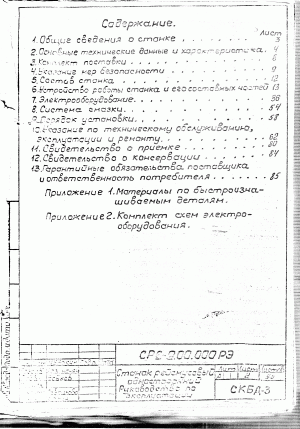 Содержание.
Лист
1. Общие сведения о станке . . . . 3
2. Основные технические данные и характеристика. 4
3. Комплект поставки . . . . 6
4. Указание мер безопасности . . . . 9
5. Состав станка . . . . 12
6. Устройство работы станка и его составных частей 13
7. Электрооборудование. . . . . 36
8. Система смазки. . . . . 54
9. Порядок установки. . . . . 58
10. Указание по техническому обслуживанию,
эксплуатации и ремонту. . . . . 62
11. Свидетельство о приемке . . . . 80
12. Свидетельство о консервации . . . . 84
13. Гарантийные обязательства поставщика
и ответственность потребителя . . . . 85
Приложение 1. Материалы по быстроизна-
шиваемым деталям.
Приложение 2. Комплект схем электро-
оборудования.
СР6-9.00.000 РЭ
Станок рейсмусовый
односторонний
Руководство по
эксплуатации
Лист
2
СКБД-3